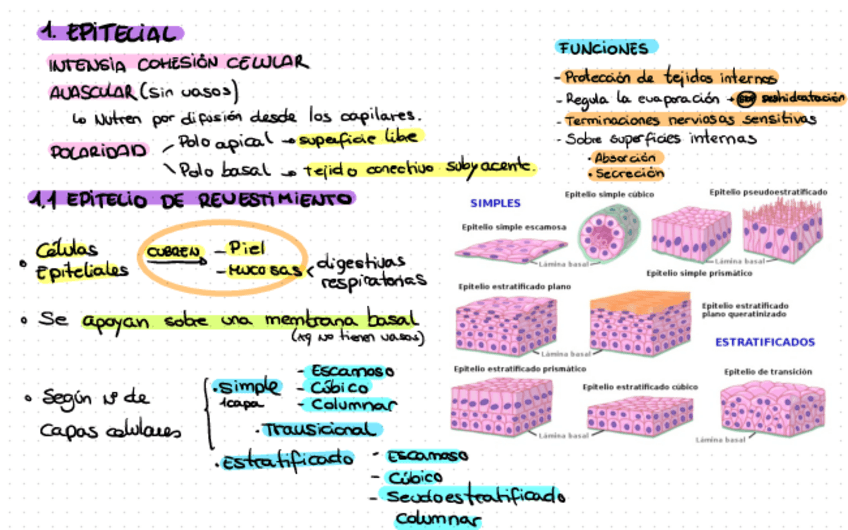 1. EPITELIAL
INTENSIA COHESIÓN CELULAR
AVASCULAR (sin vasos)
Lo Nutren por difusión desde los capilares.
POLARIDAD
Polo apical → superficie libre
Polo basal → tejido conectivo subyacente.
FUNCIONES
- Protección de tejidos internos
- Regula la evaporación → deshidratación
- Terminaciones nerviosas sensitivas
- Sobre superficies internas
• Absorción
• Secreción
1.1 EPITELIO DE REVESTIMIENTO
• Células Epiteliales
CUBREN
- Piel
- Mucosas < digestivas
respiratorias
• Se apoyan sobre una membrana basal
(xq no tienen vasos)
• Según Nº de
capas celulares
• Simple
1capa
- Escamoso
- Cúbico
- Columnar
• Transicional
• Estratificado
- Escamoso
- Cúbico
- Seudoestratificado
Columnar
SIMPLES
Epitelio simple escamosa
Epitelio simple cúbico
Epitelio pseudoestratificado
Lámina basal
Lámina basal
Epitelio simple prismático
Epitelio estratificado plano
Epitelio estratificado
plano queratinizado
Lámina basal
ESTRATIFICADOS
Epitelio estratificado prismático
Epitelio estratificado cúbico
Epitelio de transición
Lámina basal
Lámina basal